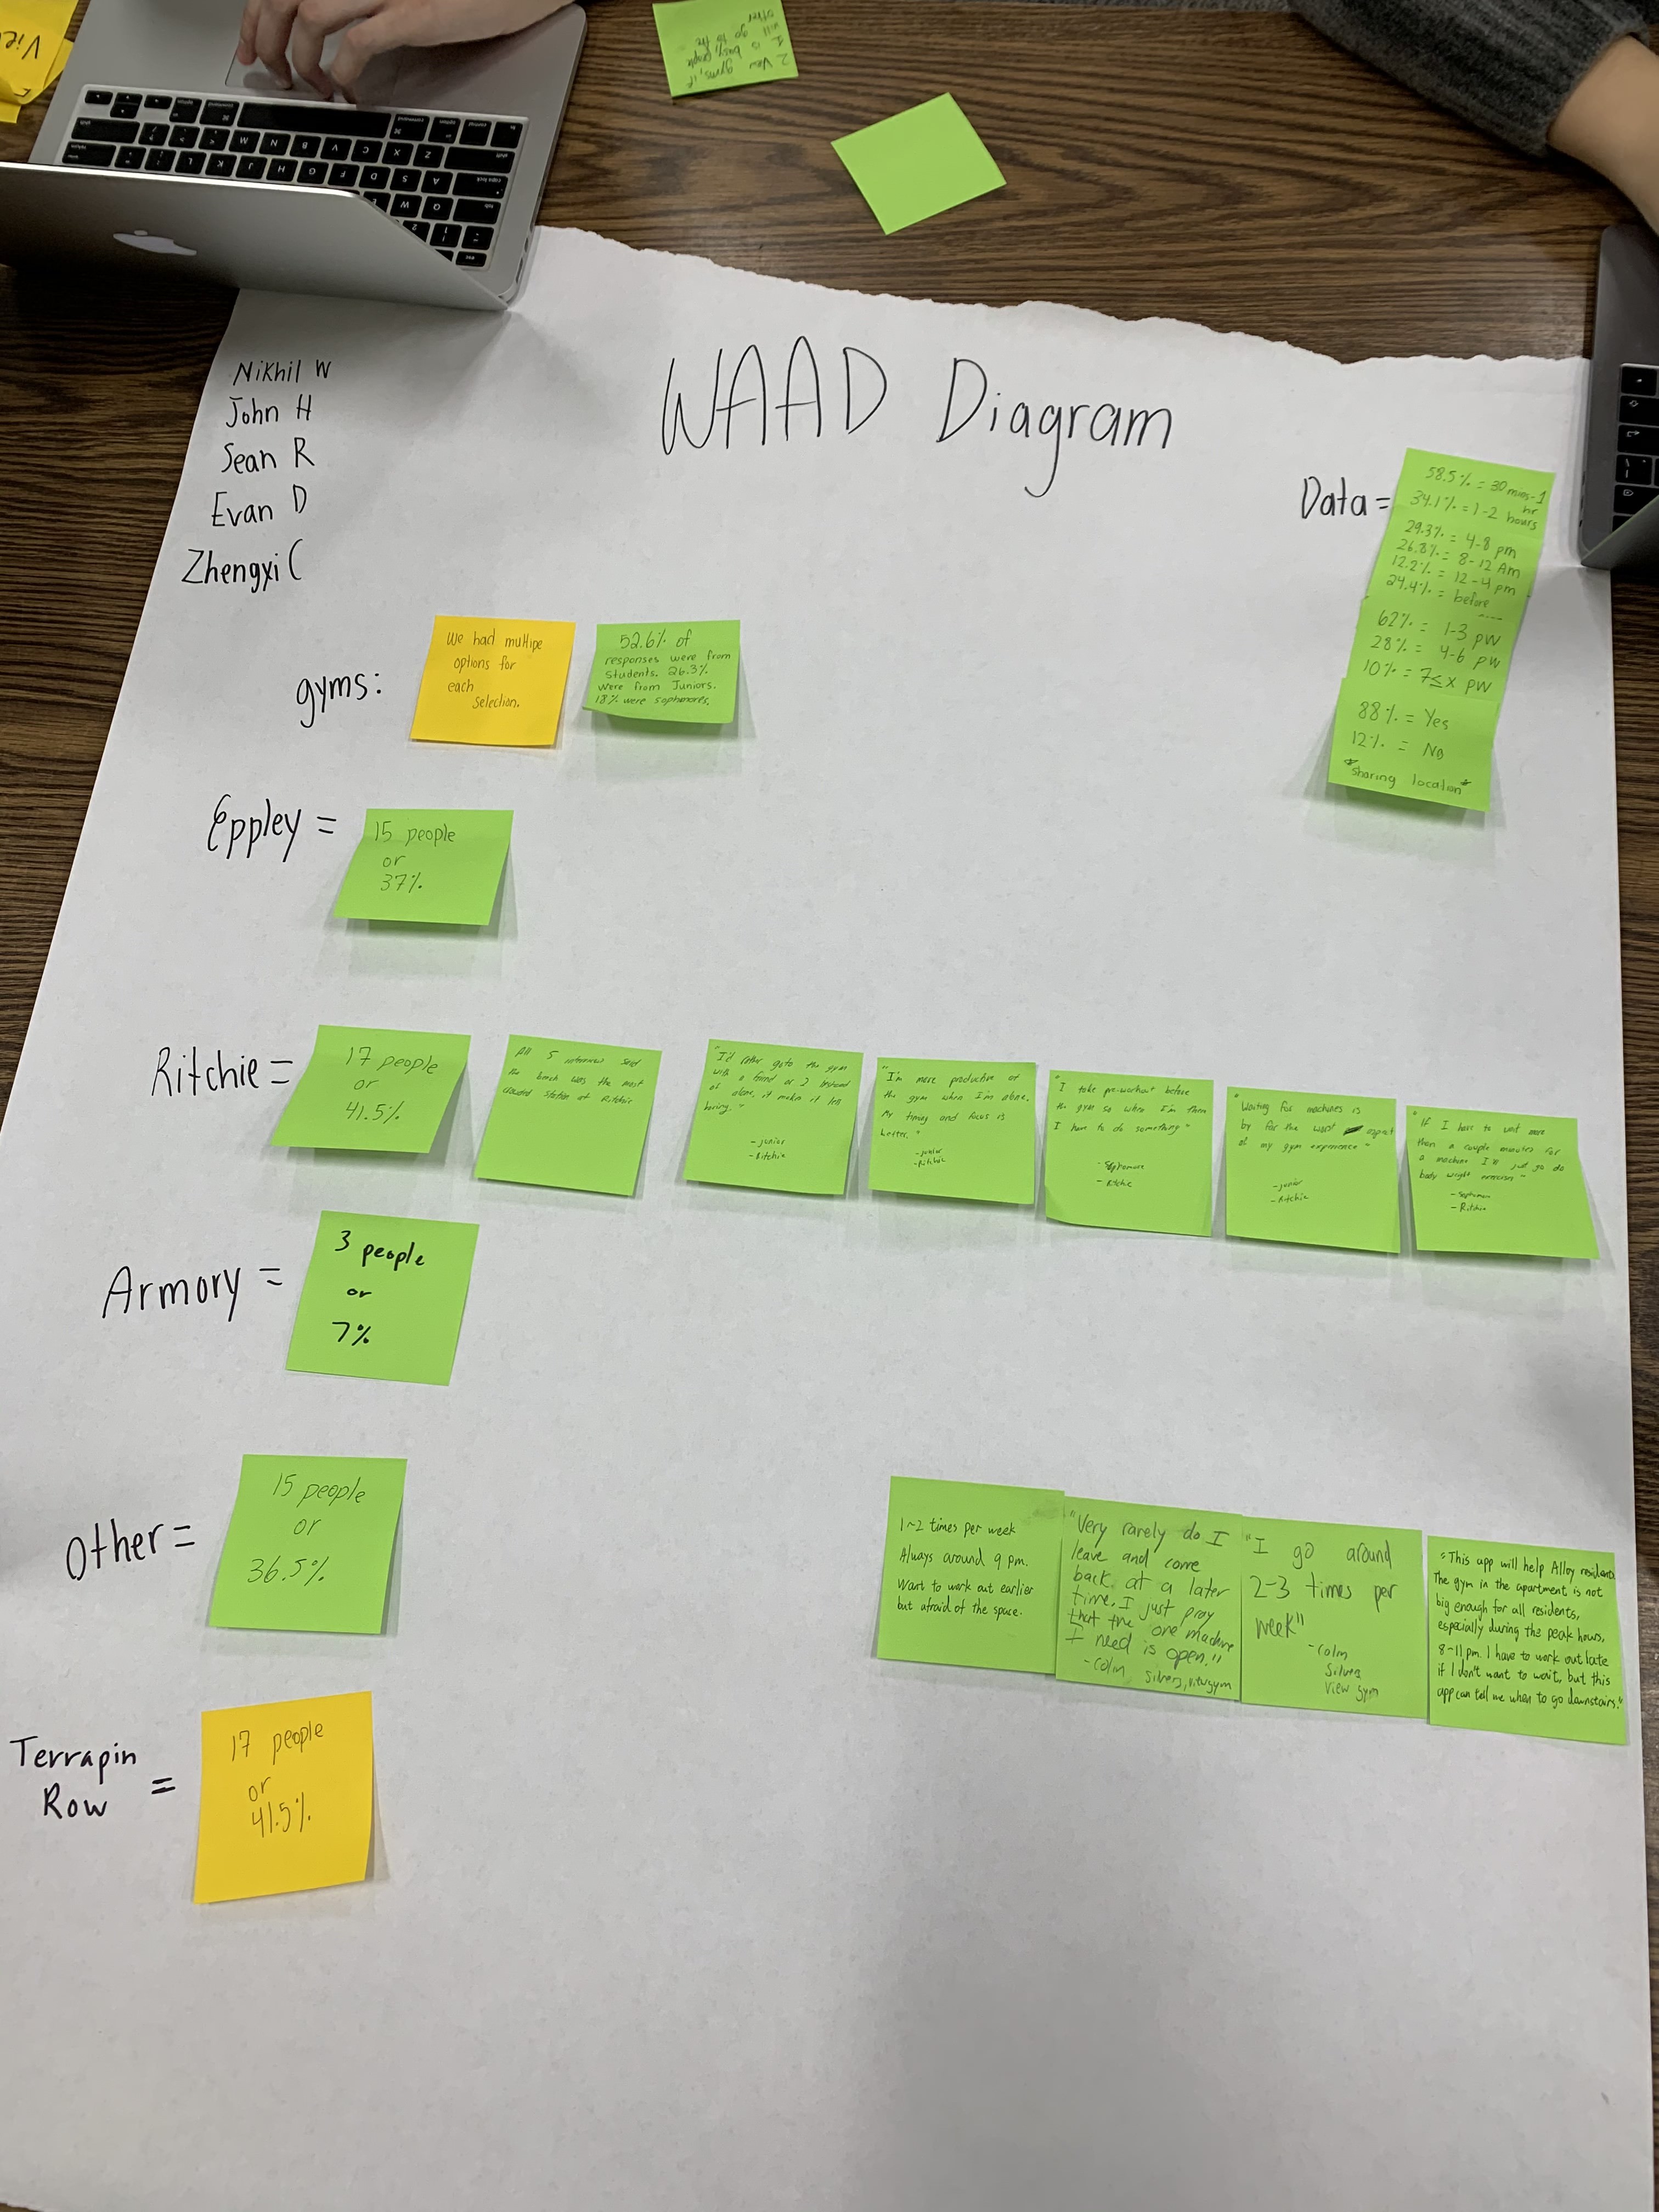 View
2 View
gyms, if
1 is busy, people
will go to the
other
WAAD Diagram
Nikhil W
John H
Sean R
Evan D
Zhengxi C
Data =
58.5% = 30 mins-1 hr
34.1% = 1-2 hours
29.3% = 4-8 pm
26.8% = 8-12 Am
12.2% = 12-4 pm
24.4% = before
62% = 1-3 pw
28% = 4-6 pw
10% = 7≤x pw
88% = Yes
12% = No
*sharing location*
gyms:
we had multipe
options for
each
selection.
52.6% of
responses were from
students. 26.3%
were from Juniors.
18% were sophmores.
Eppley =
15 people
or
37%
Ritchie =
17 people
or
41.5%
All 5 said
the bench was the most
crowded station at Ritchie
"I'd rather goto the gym
with a friend or 2 instead
of alone, it makes it less
boring."
-junior
-Ritchie
"I'm more productive at
the gym when I'm alone.
My timing and focus is
better."
-junior
-Ritchie
"I take pre-workout before
the gym so when I'm there
I have to do something"
-Sophomore
-Ritchie
"Waiting for machines is
by far the worst aspect
of my gym experience"
-junior
-Ritchie
"If I have to wait more
than a couple minutes for
a machine I'll just go do
body weight exercises"
-Ritchie
Armory =
3 people
or
7%
Other =
15 people
or
36.5%
1~2 times per week
Always around 9 pm.
Want to work out earlier
but afraid of the space.
"Very rarely do I
leave and come
back at a later
time. I just pray
that the one machine
I need is open."
-Colin, gym
"I go around
2-3 times per
week"
-Colin
View gym
"This app will help Alloy residents
The gym in the apartment is not
big enough for all residents,
especially during the peak hours,
8-11pm. I have to work out late
if I don't want to wait, but this
app can tell me when to go downstairs."
Terrapin
Row =
17 people
or
41.5%